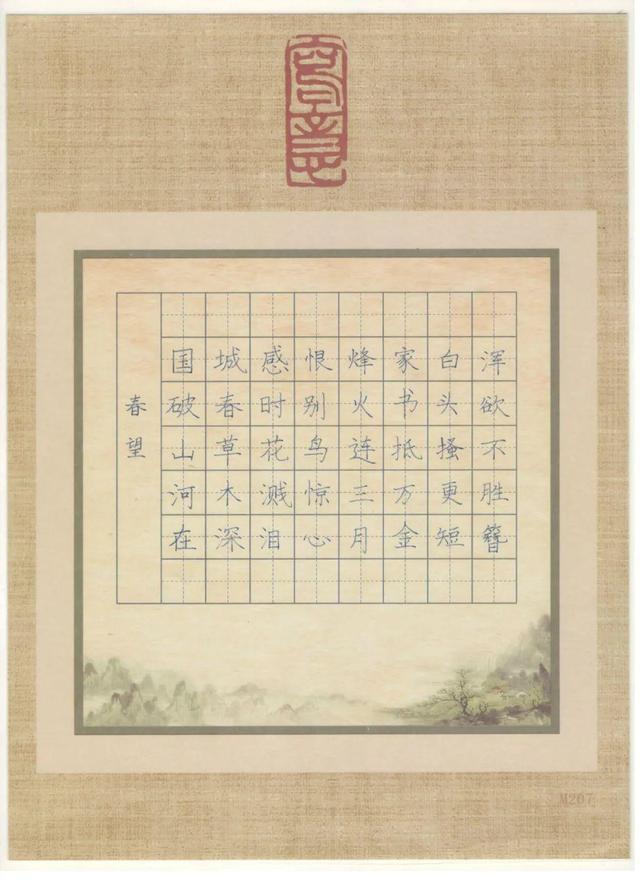 春望
国破山河在
城春草木深
感时花溅泪
恨别鸟惊心
烽火连三月
家书抵万金
白头搔更短
浑欲不胜簪
M207